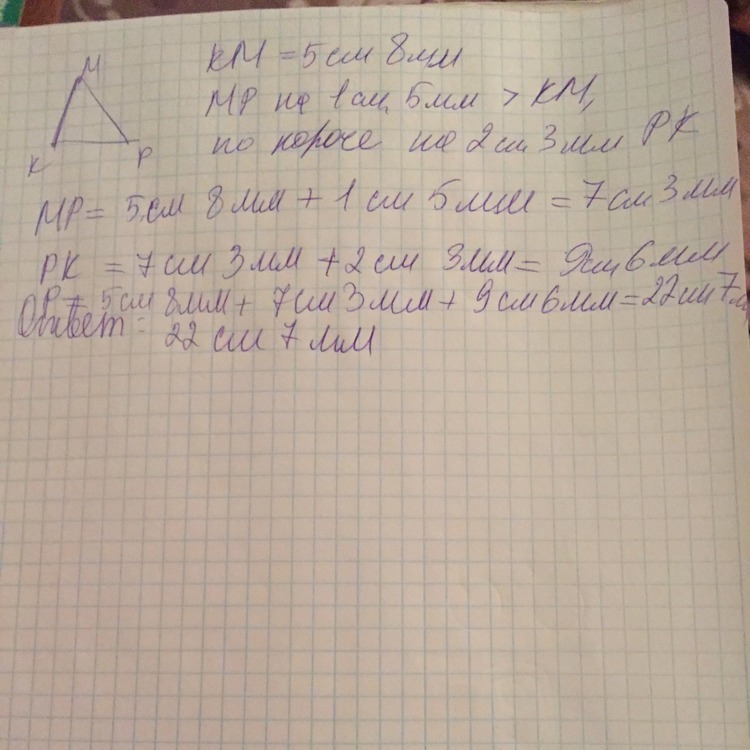 М
К
Р
КМ = 5 см 8 мм
МР на 1 см, 5 мм > КМ,
но короче на 2 см 3 мм РК
МР = 5 см 8 мм + 1 см 5 мм = 7 см 3 мм
РК = 7 см 3 мм + 2 см 3 мм = 9 см 6 мм
Р = 5 см 8 мм + 7 см 3 мм + 9 см 6 мм = 22 см 7 м
Ответ: 22 см 7 мм